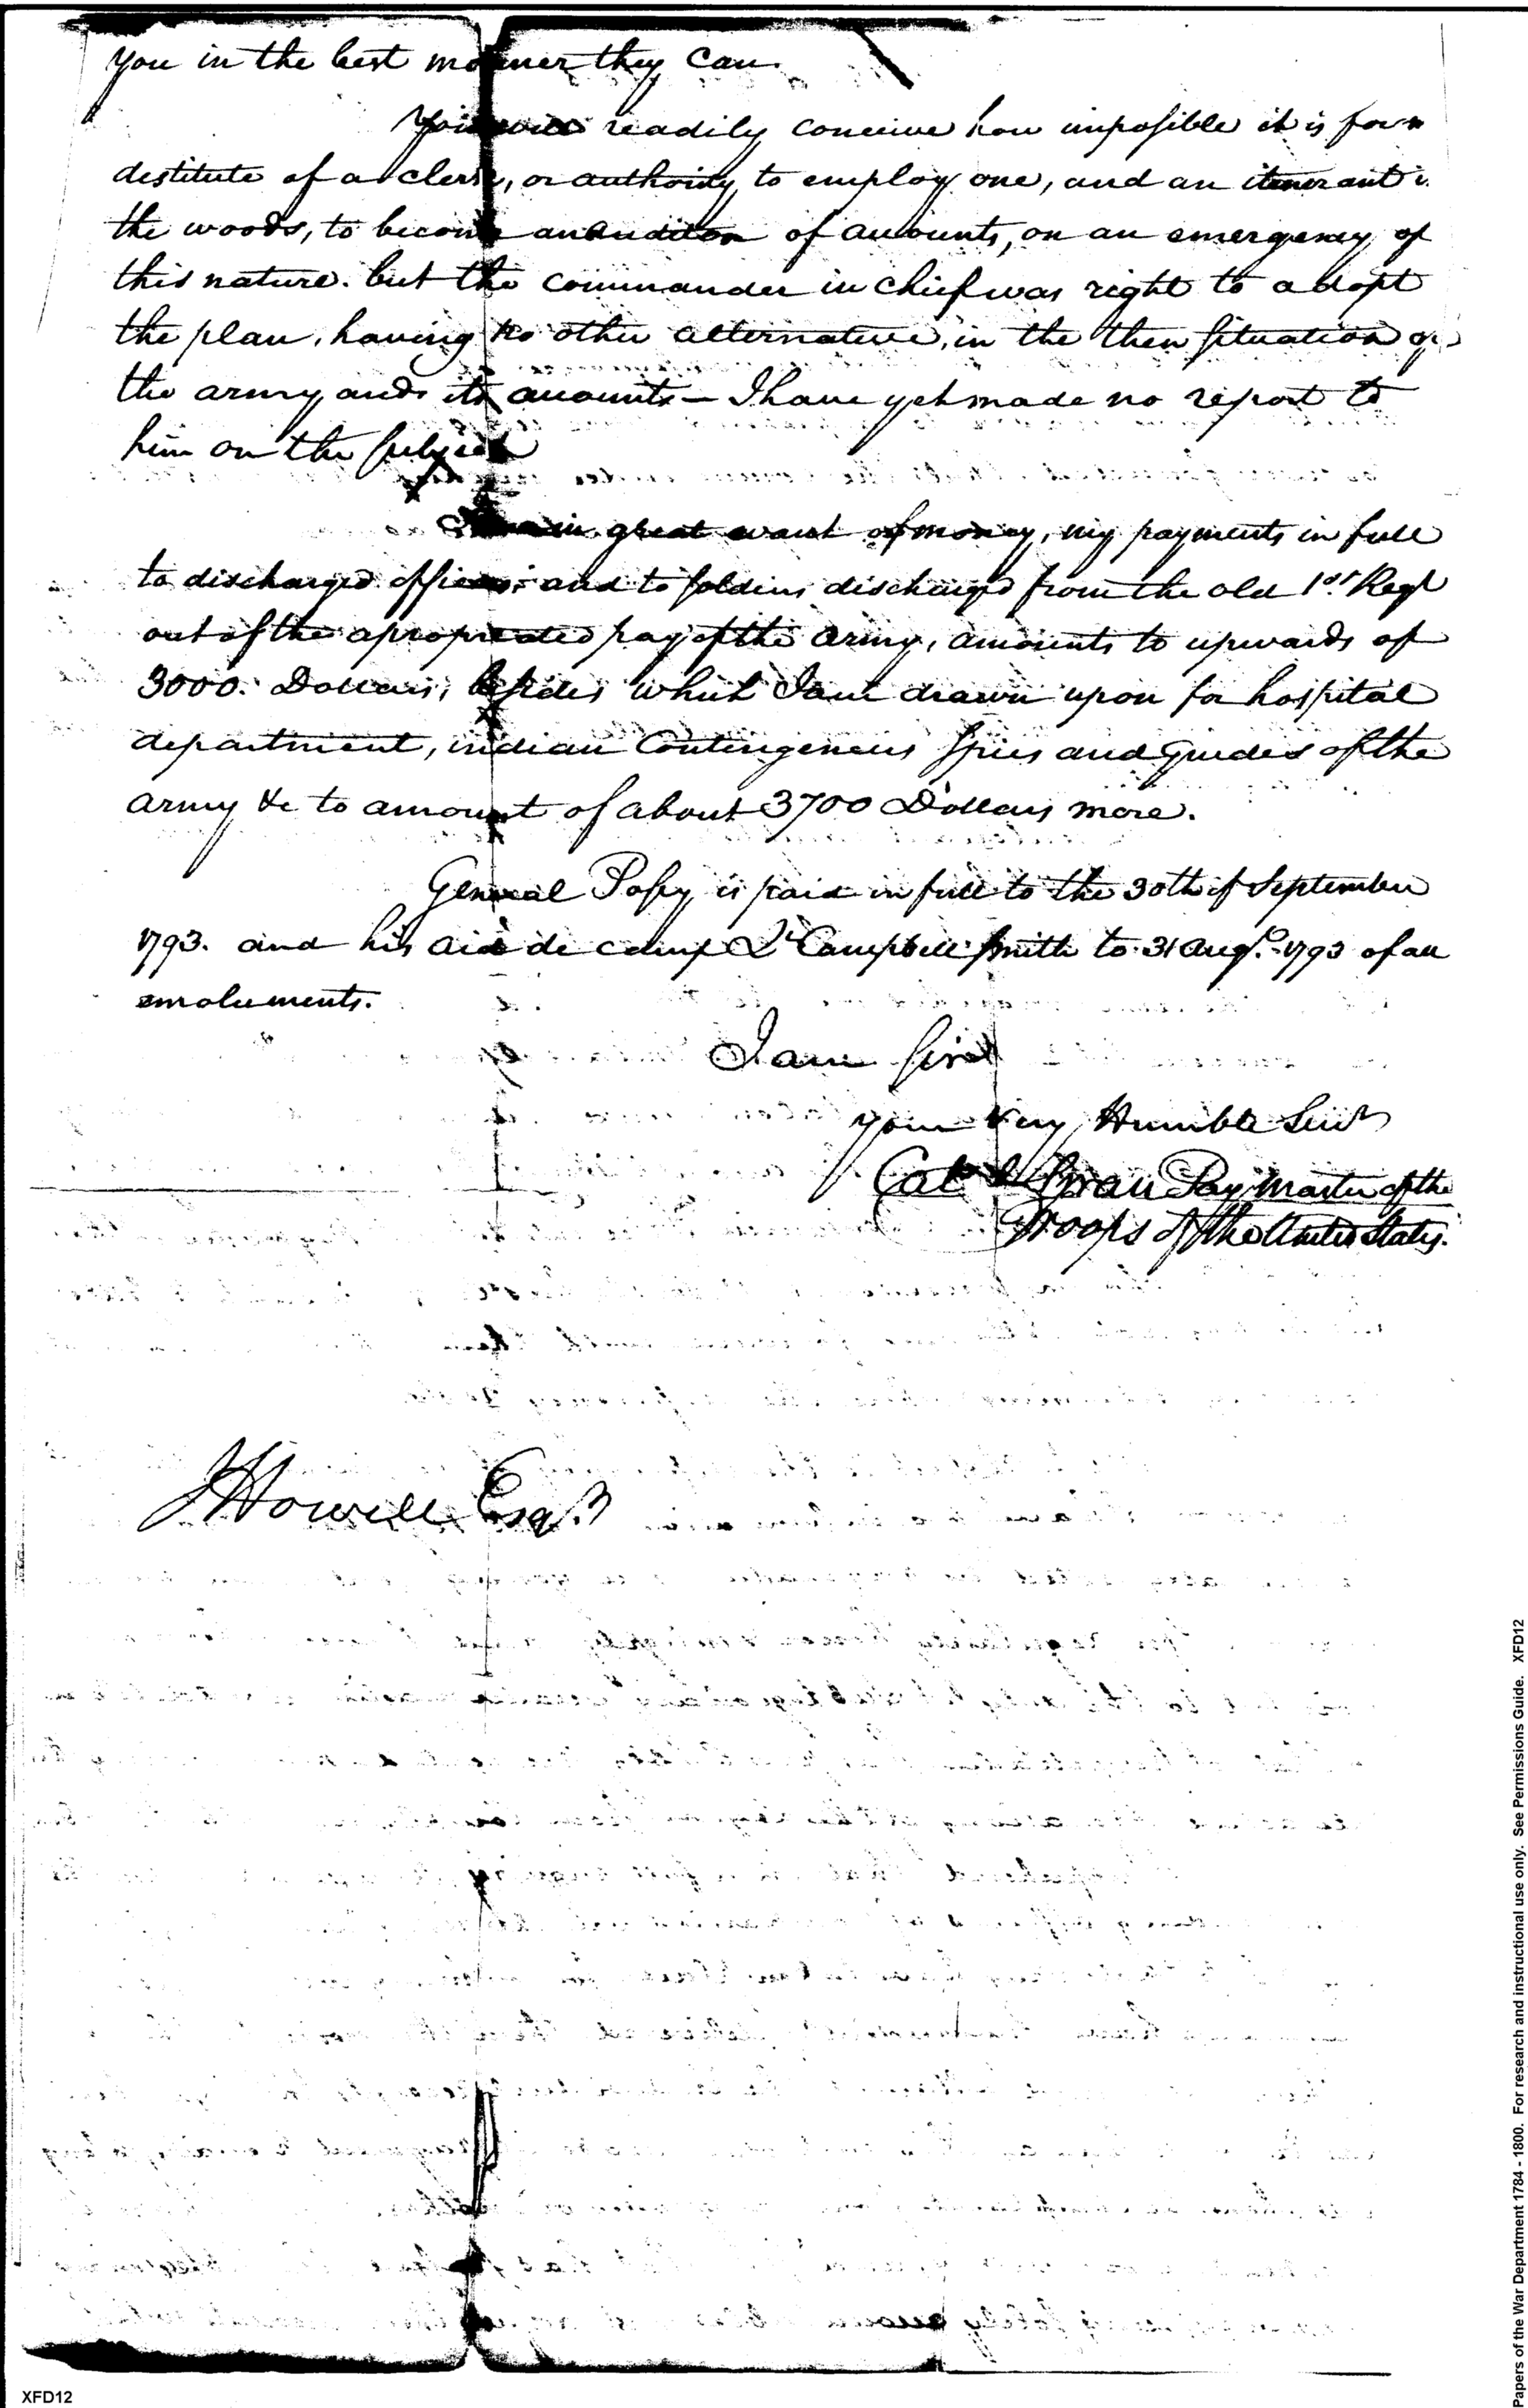 you in the best manner they can.
You will readily conceive how imposible it is for
destitute of a clerk, or authority to employ one, and an itinerant
the woods, to become an auditor of accounts, on an emergency of
this nature. but the commander in chief was right to adopt
the plan, having no other alternative, in the then situation of
the army and its accounts — I have yet made no report to
him on the subject
in great want of money, my payments in full
to discharged officers; and to soldiers discharged from the old 1st Regt
out of the apropriated pay of the army, amounts to upwards of
3000. Dollars, besides which I am drawn upon for hospital
department, indian Contingencies Spies and guides of the
army &c to amount of about 3700 Dollars more.
General Posey is paid in full to the 30th of September
1793. and his aid de camp Lt Campbell Smith to 31 Augt. 1793 of all
emoluments.
I am Sir
your Very Humble Servt
Cal Swan Pay Master of the
Troops of the United States.
J Howell Esqr
Papers of the War Department 1784 - 1800. For research and instructional use only. See Permissions Guide. XFD12
XFD12